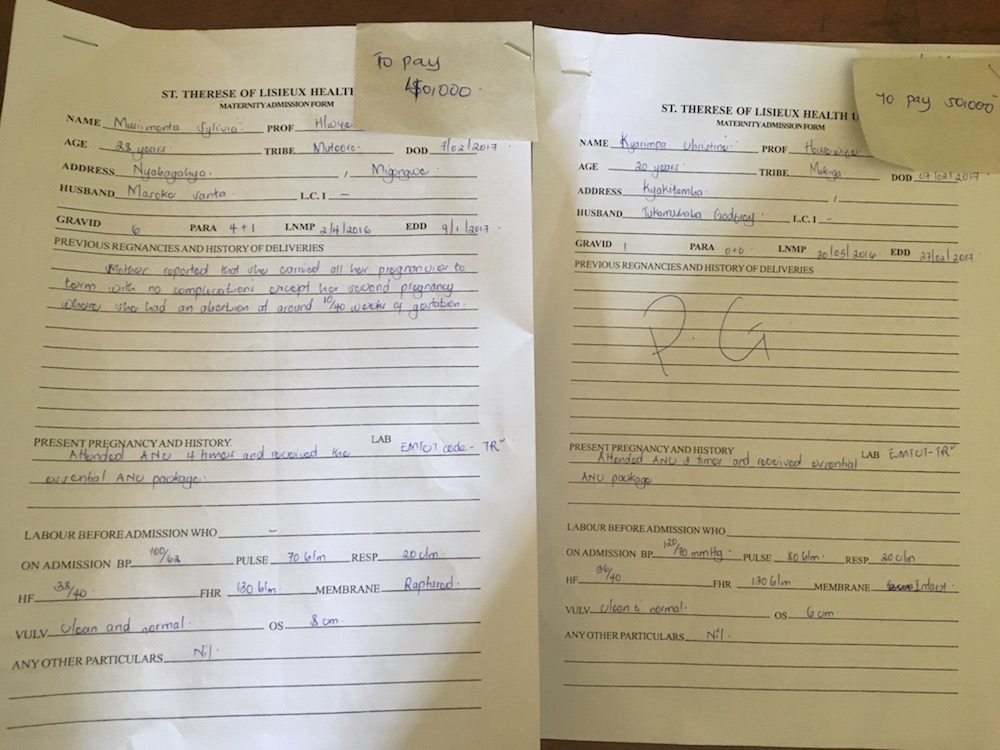 To pay
50,000
ST. THERESE OF LISIEUX HEALTH
MATERNITY ADMISSION FORM
NAME Sylivia PROF H/wife
AGE 28 years TRIBE Mutooro DOD 7/02/2017
ADDRESS Nyabagahya , Migongwe
HUSBAND Maseko Santa L.C.I –
GRAVID 6 PARA 4+1 LNMP 2/4/2016 EDD 9/1/2017
PREVIOUS REGNANCIES AND HISTORY OF DELIVERIES
Mother reported that she carried all her pregnancies to
term with no complications except her second pregnancy
where she had an abortion at around 10/40 weeks of gestation.
PRESENT PREGNANCY AND HISTORY. LAB EMTCT code - TR
Attended ANC 4 times and received the
essential ANC package.
LABOUR BEFORE ADMISSION WHO –
ON ADMISSION BP 100/62 PULSE 70 b/m RESP 20 c/m
HF 38/40 FHR 130 b/m MEMBRANE Raptured.
VULV clean and normal. OS 8 cm
ANY OTHER PARTICULARS Nil.
To pay 50,000
ST. THERESE OF LISIEUX HEALTH U
MATERNITY ADMISSION FORM
NAME Kyarimpa Christine PROF Housewife
AGE 20 years TRIBE Mukiga DOD 07/02/2017
ADDRESS Kyakitamba ,
HUSBAND Godfrey L.C.I –
GRAVID 1 PARA 0+0 LNMP 20/05/2016 EDD 27/02/2017
PREVIOUS REGNANCIES AND HISTORY OF DELIVERIES
P.G
PRESENT PREGNANCY AND HISTORY LAB EMTCT-TR
Attended ANC 3 times and received essential
ANC package.
LABOUR BEFORE ADMISSION WHO
ON ADMISSION BP 120/70 mmHg. PULSE 80 b/m. RESP 20 c/m
HF 36/40 FHR 130 b/m. MEMBRANE Intact.
VULV clean & normal. OS 6 cm
ANY OTHER PARTICULARS Nil.